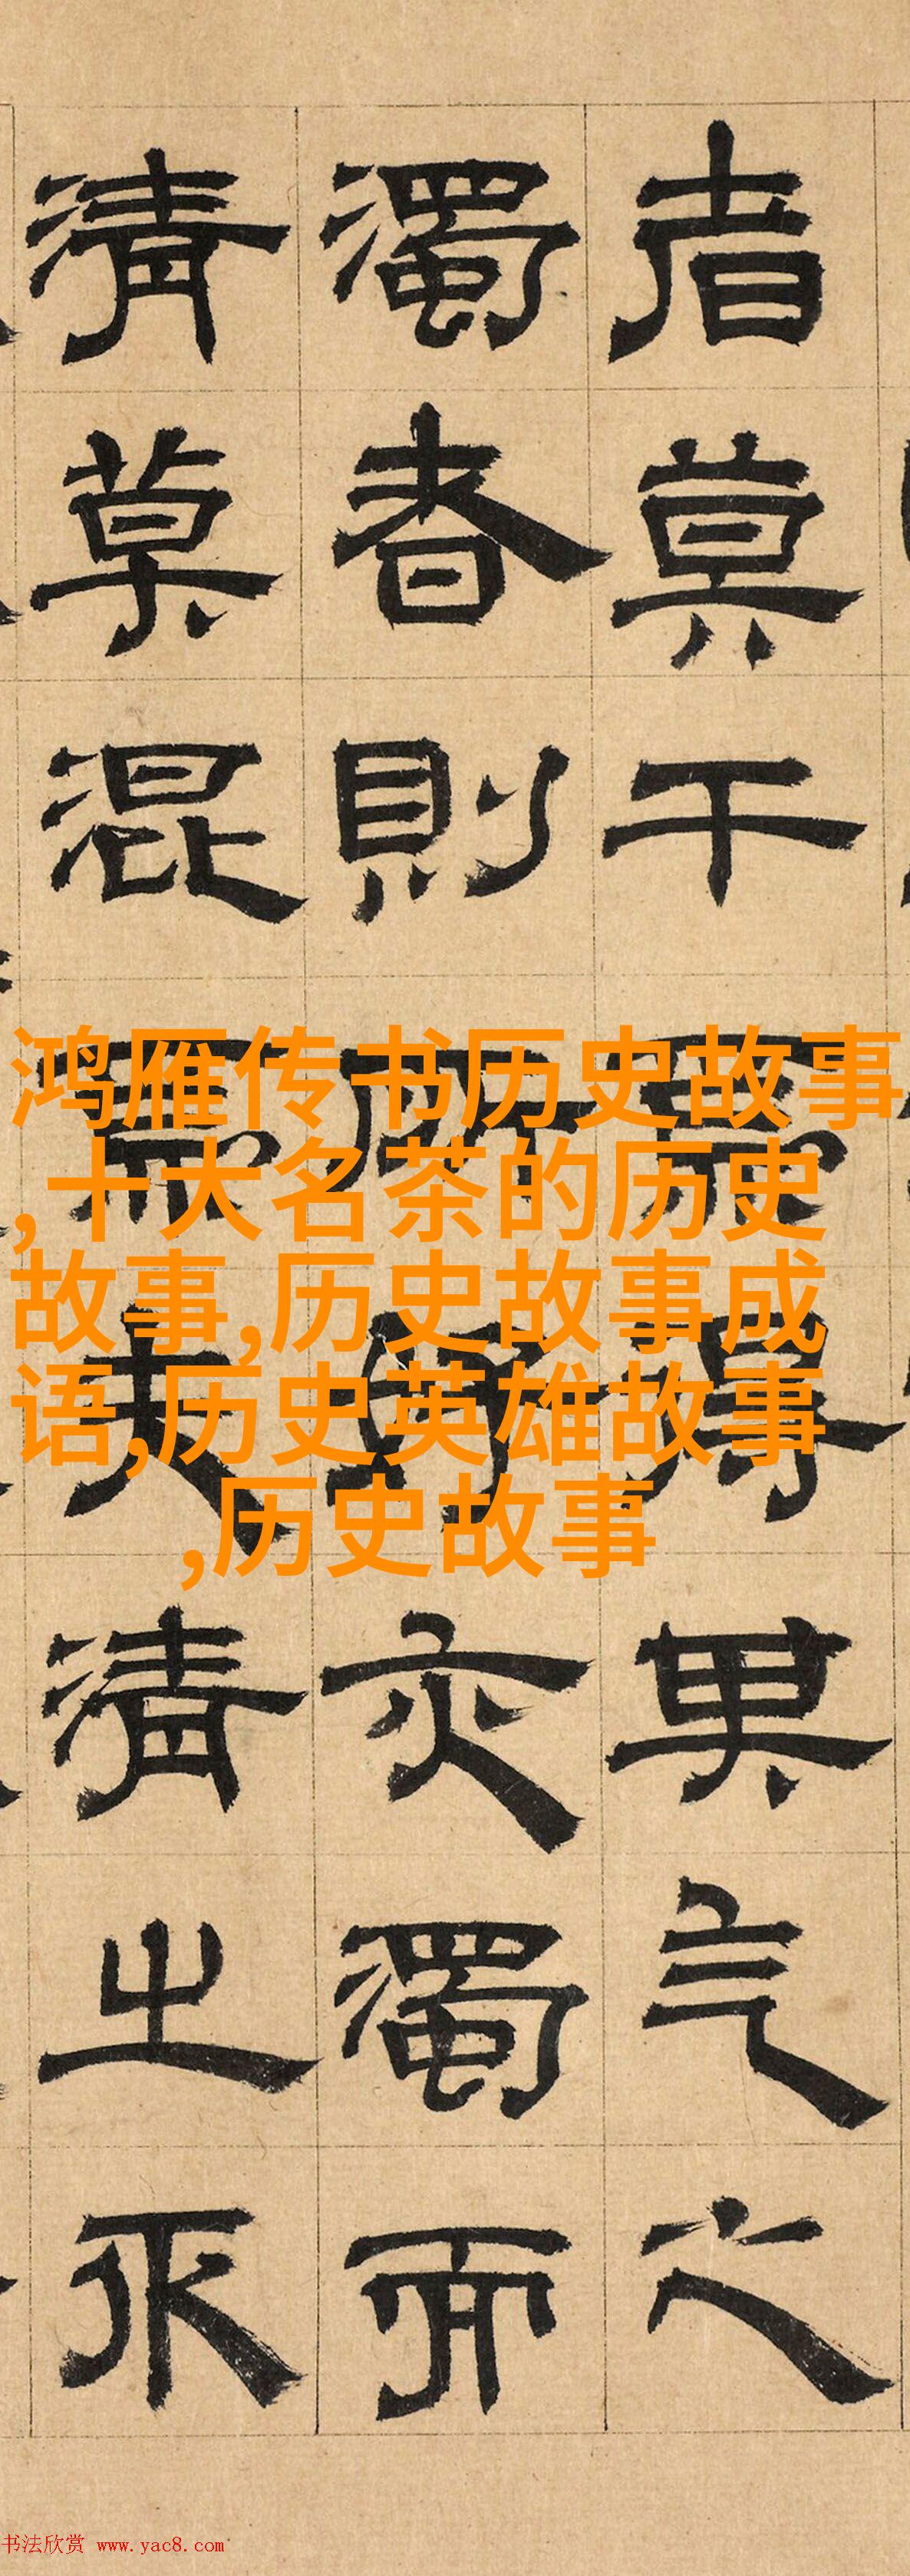 者莫干焉得其气之
濁者則所亦濁而
清莫混焉夫清之
鸿雁传书历史故事
,十大名茶的历史
故事,历史故事成
语,历史英雄故事
,历史故事
书法欣赏 www.yac8.com